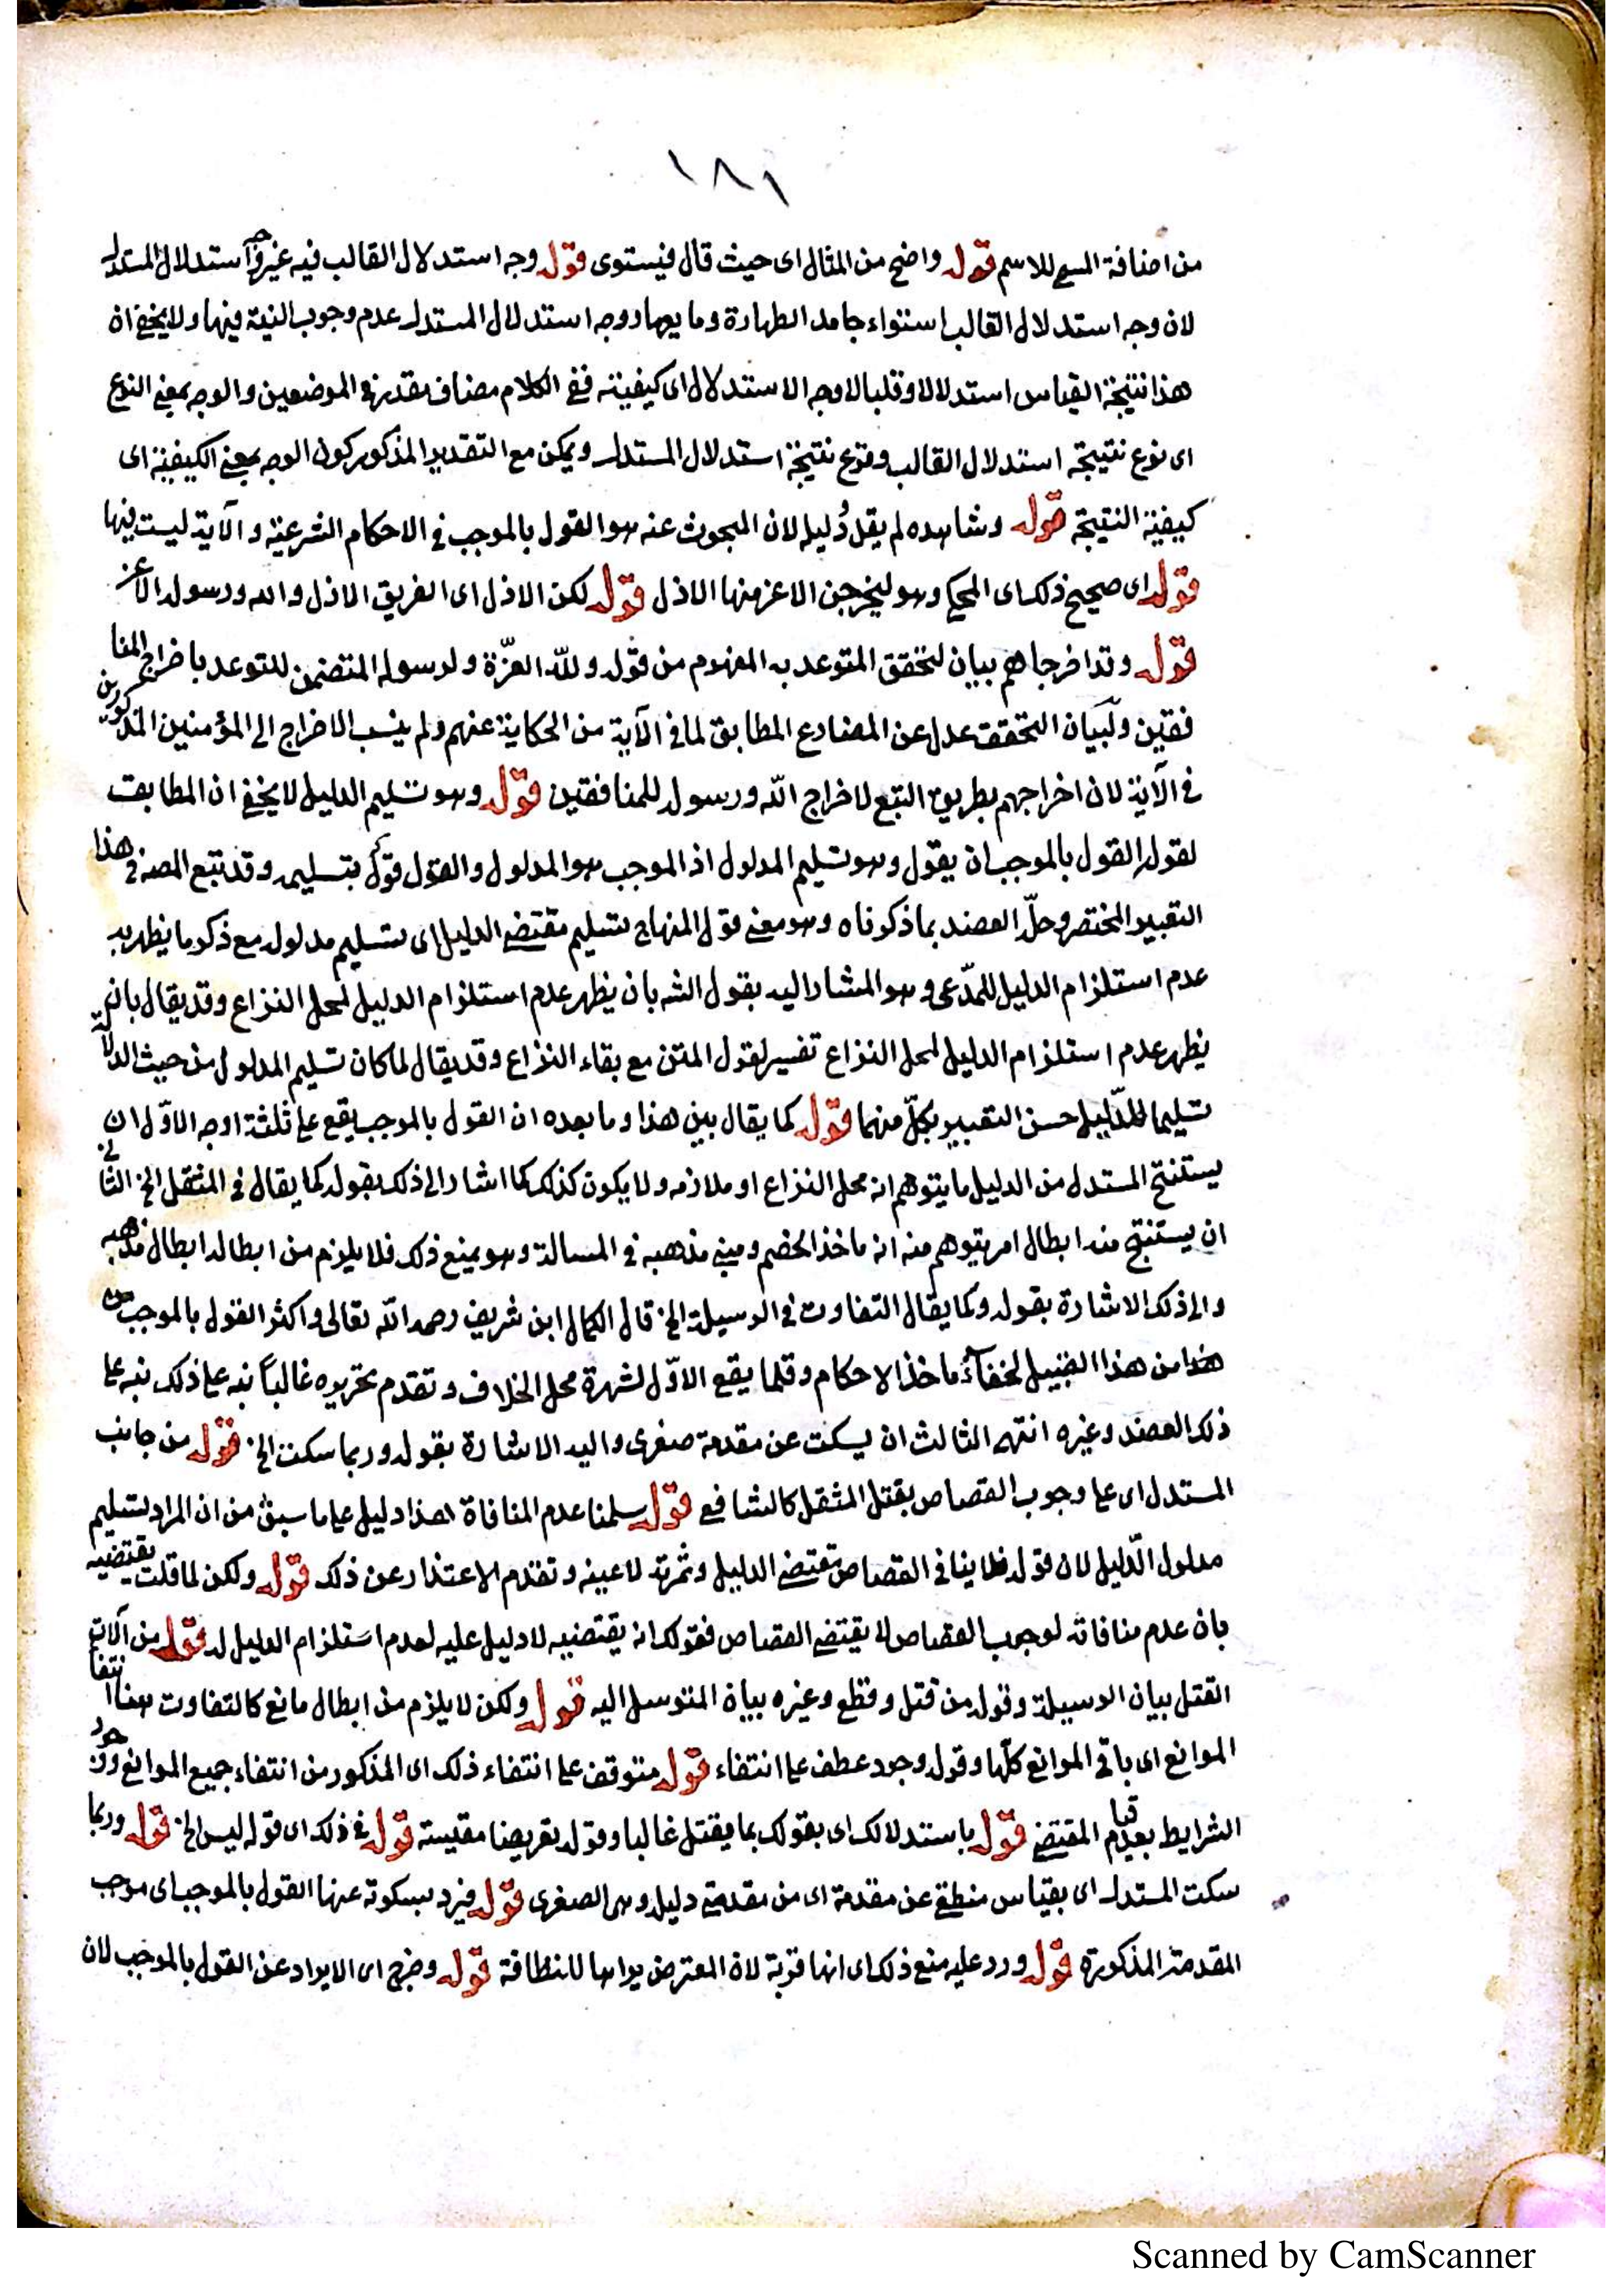 ١٨١
من اضافة المسمى للاسم قوله واضح من المثال اى حيث قال فيستوى قوله وجه استدلال القالب فيه غير وجه استدلال المستدل
لان وجه استدلال القالب استواء جامد الطهارة ومايعها ووجه استدلال المستدل عدم وجوب النية فيها ولا يخفى ان
هذا نتيجة القياس استدلالا وقلبا لا وجه الاستدلال اى كيفيته ففى الكلام مضاف مقدر فى الموضعين والوجه بمعنى النوع
اى نوع نتيجة استدلال القالب ونوع نتيجة استدلال المستدل ويمكن مع التقدير المذكور كون الوجه بمعنى الكيفية اى
كيفية النتيجة قوله وشاهده لم يقل دليله لان المبحوث عنه هو القول بالموجب فى الاحكام الشرعية و الآية ليست فيها
قوله اى صحيح ذلك اى المحكى وهو ليخرجن الاعز منها الاذل قوله لكن الاذل اى الفريق الاذل والله ورسوله الاعز
قوله وقد اخرجاهم بيان لتحقق المتوعد به المفهوم من قوله ولله العزّة ولرسوله المتضمن للتوعد باخراج المنا
فقين ولبيان التحقق عدل عن المضارع المطابق لما فى الآية من الحكاية عنهم ولم ينسب الاخراج الى المؤمنين المذكورين
فى الآية لان اخراجهم بطريق التبع لاخراج الله ورسوله للمنافقين قوله وهو تسليم الدليل لا يخفى ان المطابقة
لقوله القول بالموجب ان يقول وهو تسليم المدلول اذ الموجب هو المدلول والقول قولك بتسليمه وقد تبع المصنف فى هذا
التعبير المختصر وحلّه العضد بما ذكرناه وهو معنى قول المنهاج تسليم مقتضى الدليل اى تسليم مدلوله مع ذكر ما يظهر به
عدم استلزام الدليل للمدّعى وهو المشار اليه بقول الشه بان يظهر عدم استلزام الدليل لمحل النزاع وقد يقال بان
يظهر عدم استلزام الدليل لمحل النزاع تفسير لقول المتن مع بقاء النزاع وقد يقال لما كان تسليم المدلول من حيث الدلالة
تسليما للدّليل حسن التعبير بكلّ منهما قوله كما يقال بين هذا وما بعده ان القول بالموجب يقع على ثلثة اوجه الاوّل ان
يستنتج المستدل من الدليل ما يتوهم انه محل النزاع او ملازمه ولا يكون كذلك كما اشار الى ذلك بقوله كما يقال فى المثقل الخ الثانى
ان يستنتج منه ابطال امر يتوهم منه انه ماخذ الخصم ومبنى مذهبه فى المسالة وهو يمنع ذلك فلا يلزم من ابطاله ابطال مذهبه
والى ذلك الاشارة بقوله وكما يقال التفاوت فى الوسيلة الخ قال الكمال ابن شريف رحمه الله تعالى واكثر القول بالموجب من
هذا من هذا القبيل لخفاء ماخذ الاحكام وقلما يقع الاوّل لشهرة محل الخلاف وتقدم تحريره غالباً نبه على ذلك نبه على
ذلك العضد وغيره انتهى الثالث ان يسكت عن مقدمة صغرى واليه الاشارة بقوله وربما سكت الخ قوله من جانب
المستدل اى على وجوب القصاص بقتل المثقل كالشافعى قوله سلمنا عدم المنافاة هذا دليل على ما سبق من ان المراد تسليم
مدلول الدّليل لان قوله فلا ينافى القصاص مقتضى الدليل وثمرته لا عينه وتقدم الاعتذار عن ذلك قوله ولكن لما قلت يقتضيه
بان عدم منافاته لوجوب القصاص لا يقتضى القصاص فقولك انه يقتضيه لا دليل عليه لعدم استلزام الدليل له قوله من آلات
القتل بيان الوسيلة وقوله من قتل وقطع وغيره بيان المتوسل اليه قوله ولكن لا يلزم من ابطال مانع كالتفاوت هنا انتفا
الموانع اى باقى الموانع كلّها وقوله وجود عطف على انتفاء قوله متوقف على انتفاء ذلك اى المذكور من انتفاء جميع الموانع ووجود
الشرايط بعد قيام المقتضى قوله باستدلالك اى بقولك بما يقتل غالبا وقوله تعريضا مقيسة قوله فى ذلك اى قوله ليس الخ قوله وربما
سكت المستدل اى بقياس منطقى عن مقدمة اى من مقدمتى دليله وهى الصغرى قوله فيرد بسكوته عنها القول بالموجب اى موجب
المقدمة المذكورة قوله ورد عليه منع ذلك اى انها قربة لان المعترض يراها للنظافة قوله وخرج اى الايراد عن القول بالموجب لان
Scanned by CamScanner